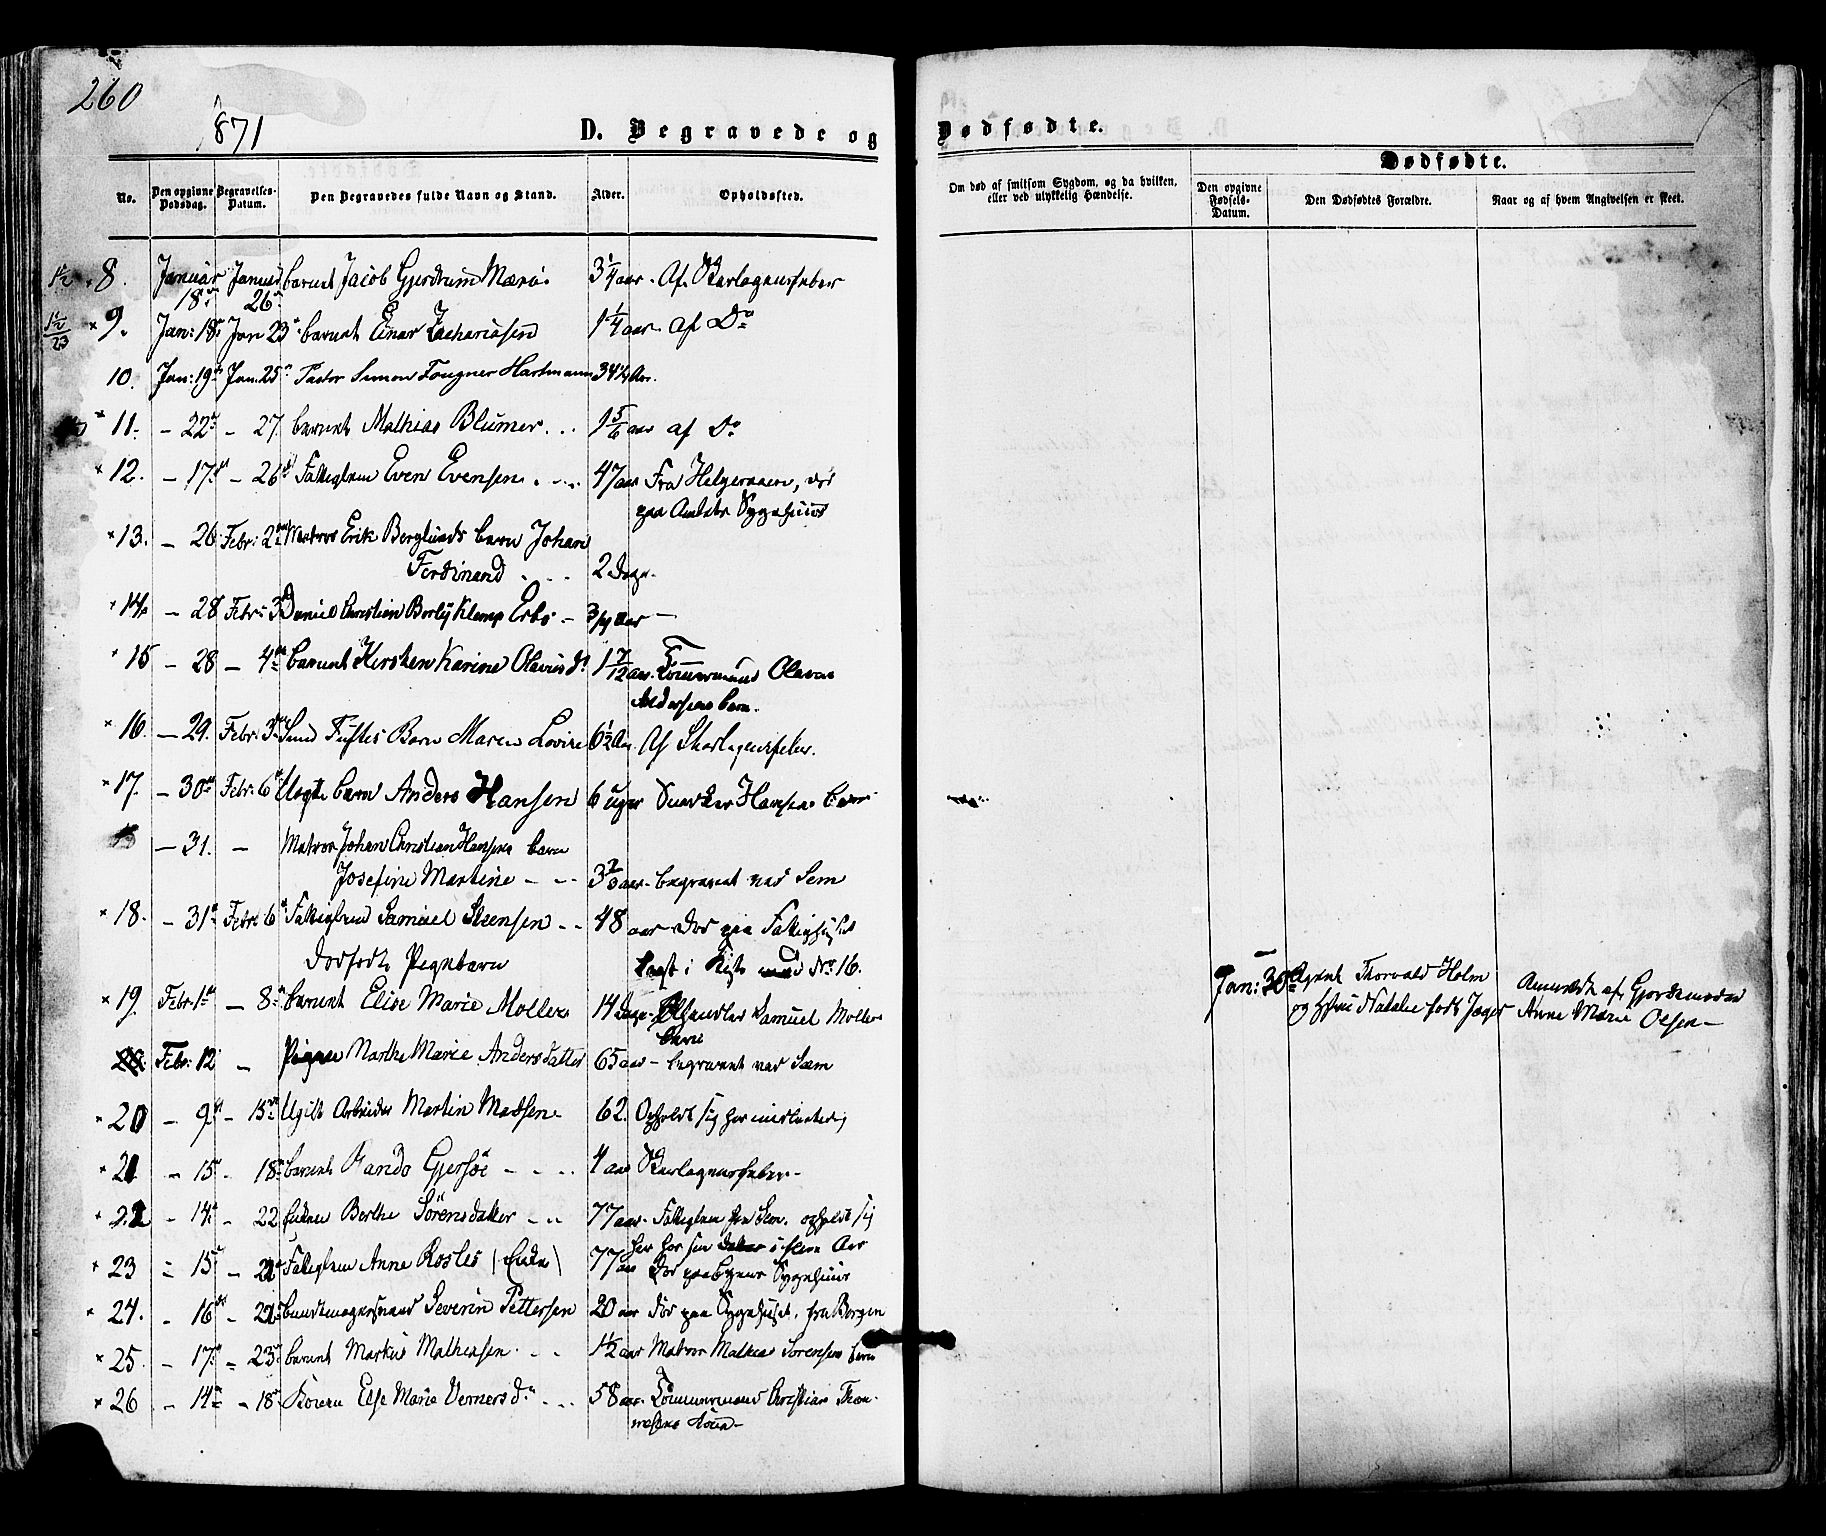 260
1871
D. Begravede og
Dødfødte.
Dødfødte.
No.
Den opgivne Dødsdag.
Begravelses-Datum.
Den Begravedes fulde Navn og Stand.
Alder.
Opholdssted.
Om død af smitsom Sygdom, og da hvilken, eller ved ulykkelig Hændelse.
Den opgivne Fødsels-Datum.
Den Dødfødtes Forældre.
Naar og af hvem Angivelsen er skeet.
8. Januar 18 Januar 26 barnet Jacob Gjerdrum 3 1/4 aar. Af Skarlagensfeber
9. Jan: 18 Jan 23 barnet Einar Zachariasen 1 1/4 aar. af Do
10. Jan: 19 Jan. 25 Pastor Simon Fougner Hartmann 34 1/2 Aar.
11. – 22 – 27. barnet Mathias Blumer 1 5/6 aar af Do
12. – 17 – 26 Fattiglem Even Evensen 47 aar Fra Helgeroaen, död
paa Amtets Sygehuus
13. – 26 Febr: 2 Matros Erik Berglunds barn Johan
Ferdinand 2 Dage.
14. – 28 Febr: 3 Daniel Christian Klemp Erbo 3/4 aar –
15 – 28 – 4 barnet Kirsten Karine Olavusdr 1 7/12 aar. Tömmermand Olavus
Andersens barn.
16. – 29. Febr: 3 Barn Maren Lovise 6 1/2 Aar. Af Skarlagensfeber.
17. – 30 Febr: 6 Uægte barn Anders Hansen 6 uger Snedker Hansens barn
– 31. – Matros Johan Christian Hansens barn
Josefine Martine 3 aar. begravet ved Sem
18. – 31 Febr: 6 Fattiglem Samuel Steensen 48 aar död paa Fattighuset
dödfödt Pigebarn i Kiste med No 16.
Jan: 30 Agent Thorvald Holm
og Hustru Natalie född Jæger
Anmeldt af Gjordemoder
Anne Marie Olsen –
19. Febr. 1 – 8 barnet Elise Marie Moller 14 Dage. Handler Samuel Mollers
barn
20. Febr: 12 – Pigen Marthe Marie Andersdatter 65 aar – begravet ved Sem
20 – 9 – 15 Ugift Arbeider Martin Madsen 62. Opholdt sig her midlertidig
21 – 15 – 18 barnet Rando Gjersöe 4 aar Skarlagensfeber –
22 – 14 – 22 Enken Berthe Sörensdatter 77 aar. Fattiglem fra Sem. opholdt sig
her hos sin datter i flere Aar
23 – 15 – 22 Fattiglem Anne Rosles (Enke) 77 aar Död paa Byens Sygehuus
24. – 16 – 22 Buntmagersvend Severin Pettersen 20 aar död paa Sygehuset, fra Bergen
25 – 17 – 23 barnet Markus Mathiasen 1 1/2 aar Matros Mathias Sörensens barn
26 – 14 – 18 Konen Else Marie Vernersdr 58 aar. Tömmermand Christian
Kone –